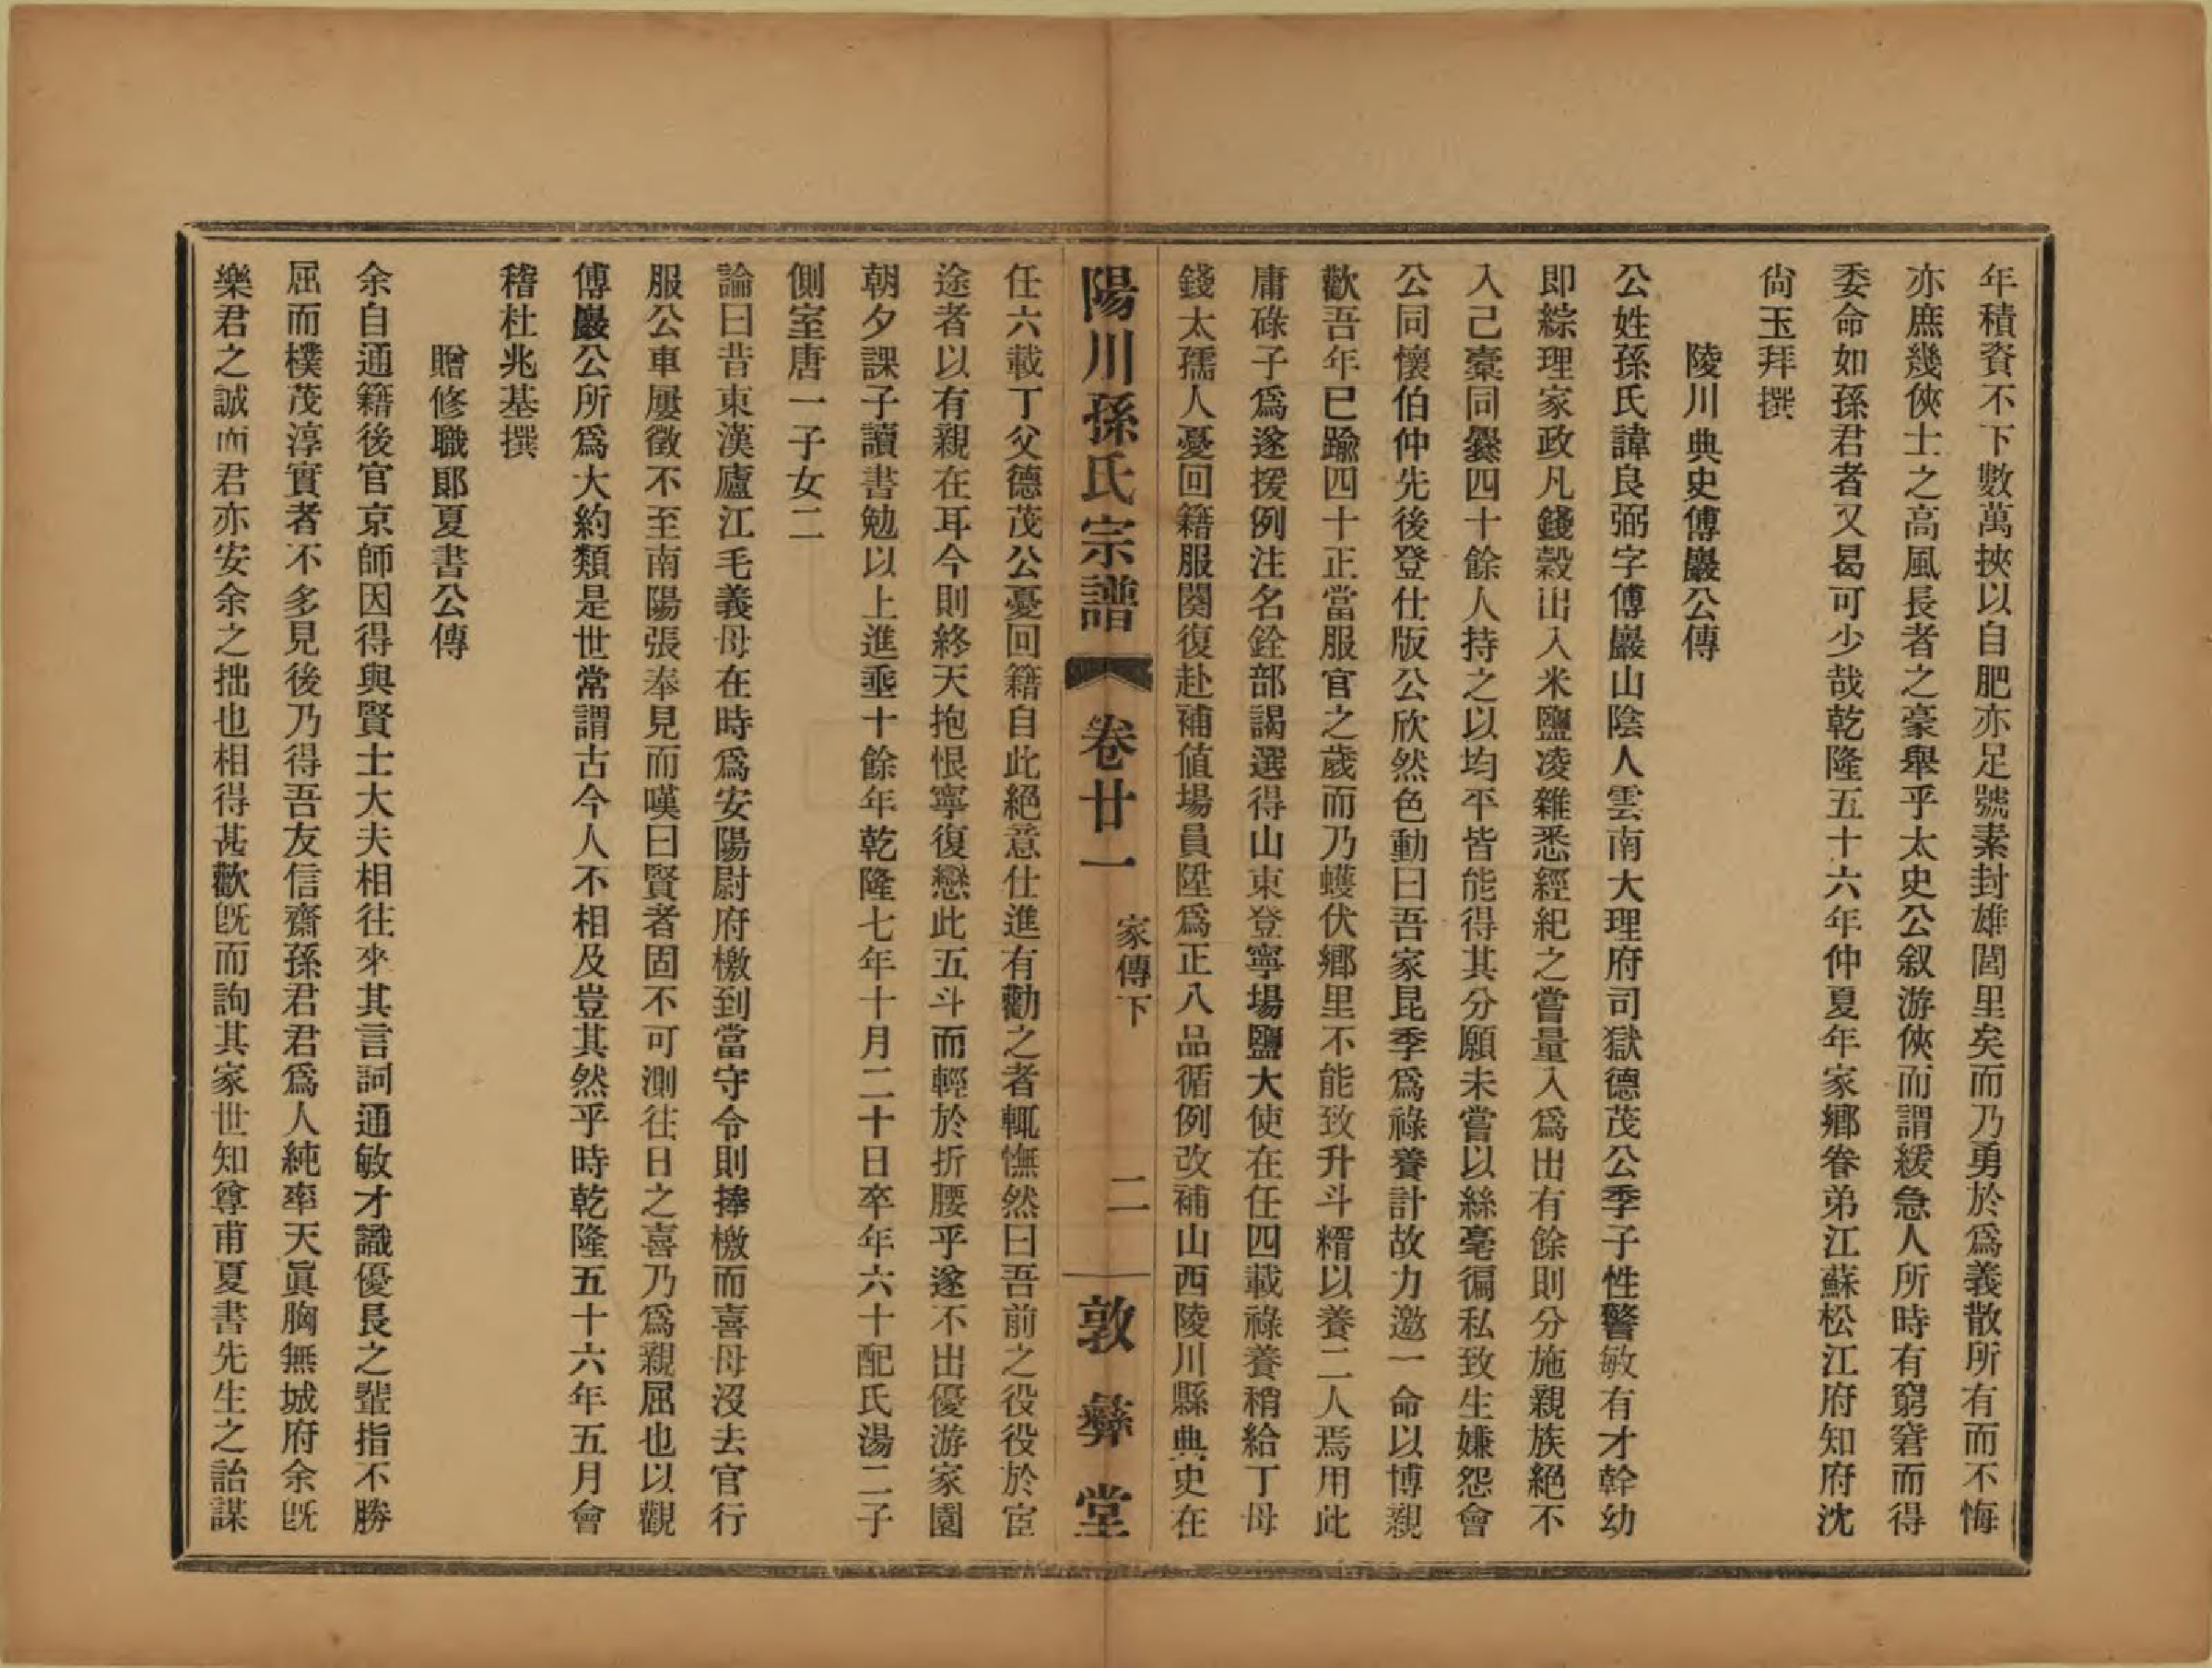 年積資不下數萬挾以自肥亦足號素封雄閭里矣而乃勇於爲義散所有而不悔
亦庶幾俠士之高風長者之豪舉乎太史公叙游俠而謂緩急人所時有窮窘而得
委命如孫君者又曷可少哉乾隆五十六年仲夏年家鄉眷弟江蘇松江府知府沈
尙玉拜撰
陵川典史傅巖公傳
公姓孫氏諱良弼字傅巖山陰人雲南大理府司獄德茂公季子性警敏有才幹幼
即綜理家政凡錢穀出入米鹽凌雜悉經紀之嘗量入爲出有餘則分施親族絕不
入己橐同爨四十餘人持之以均平皆能得其分願未嘗以絲毫徧私致生嫌怨會
公同懷伯仲先後登仕版公欣然色動曰吾家昆季爲祿養計故力邀一命以博親
歡吾年已踰四十正當服官之歲而乃蠖伏鄉里不能致升斗糈以養二人焉用此
庸碌子爲遂援例注名銓部謁選得山東登寧場鹽大使在任四載祿養稍給丁母
錢太孺人憂回籍服闋復赴補値場員陞爲正八品循例改補山西陵川縣典史在
陽川孫氏宗譜 卷廿一 家傳下 二 敦彝堂
任六載丁父德茂公憂回籍自此絕意仕進有勸之者輒憮然曰吾前之役役於宦
途者以有親在耳今則終天抱恨寧復戀此五斗而輕於折腰乎遂不出優游家園
朝夕課子讀書勉以上進垂十餘年乾隆七年十月二十日卒年六十配氏湯二子
側室唐一子女二
論曰昔東漢廬江毛義母在時爲安陽尉府檄到當守令則捧檄而喜母沒去官行
服公車屢徵不至南陽張奉見而嘆曰賢者固不可測往日之喜乃爲親屈也以觀
傅巖公所爲大約類是世常謂古今人不相及豈其然乎時乾隆五十六年五月會
稽杜兆基撰
贈修職郞夏書公傳
余自通籍後官京師因得與賢士大夫相往來其言詞通敏才識優長之輩指不勝
屈而樸茂淳實者不多見後乃得吾友信齋孫君君爲人純率天眞胸無城府余旣
樂君之誠而君亦安余之拙也相得甚歡旣而詢其家世知尊甫夏書先生之詒謀